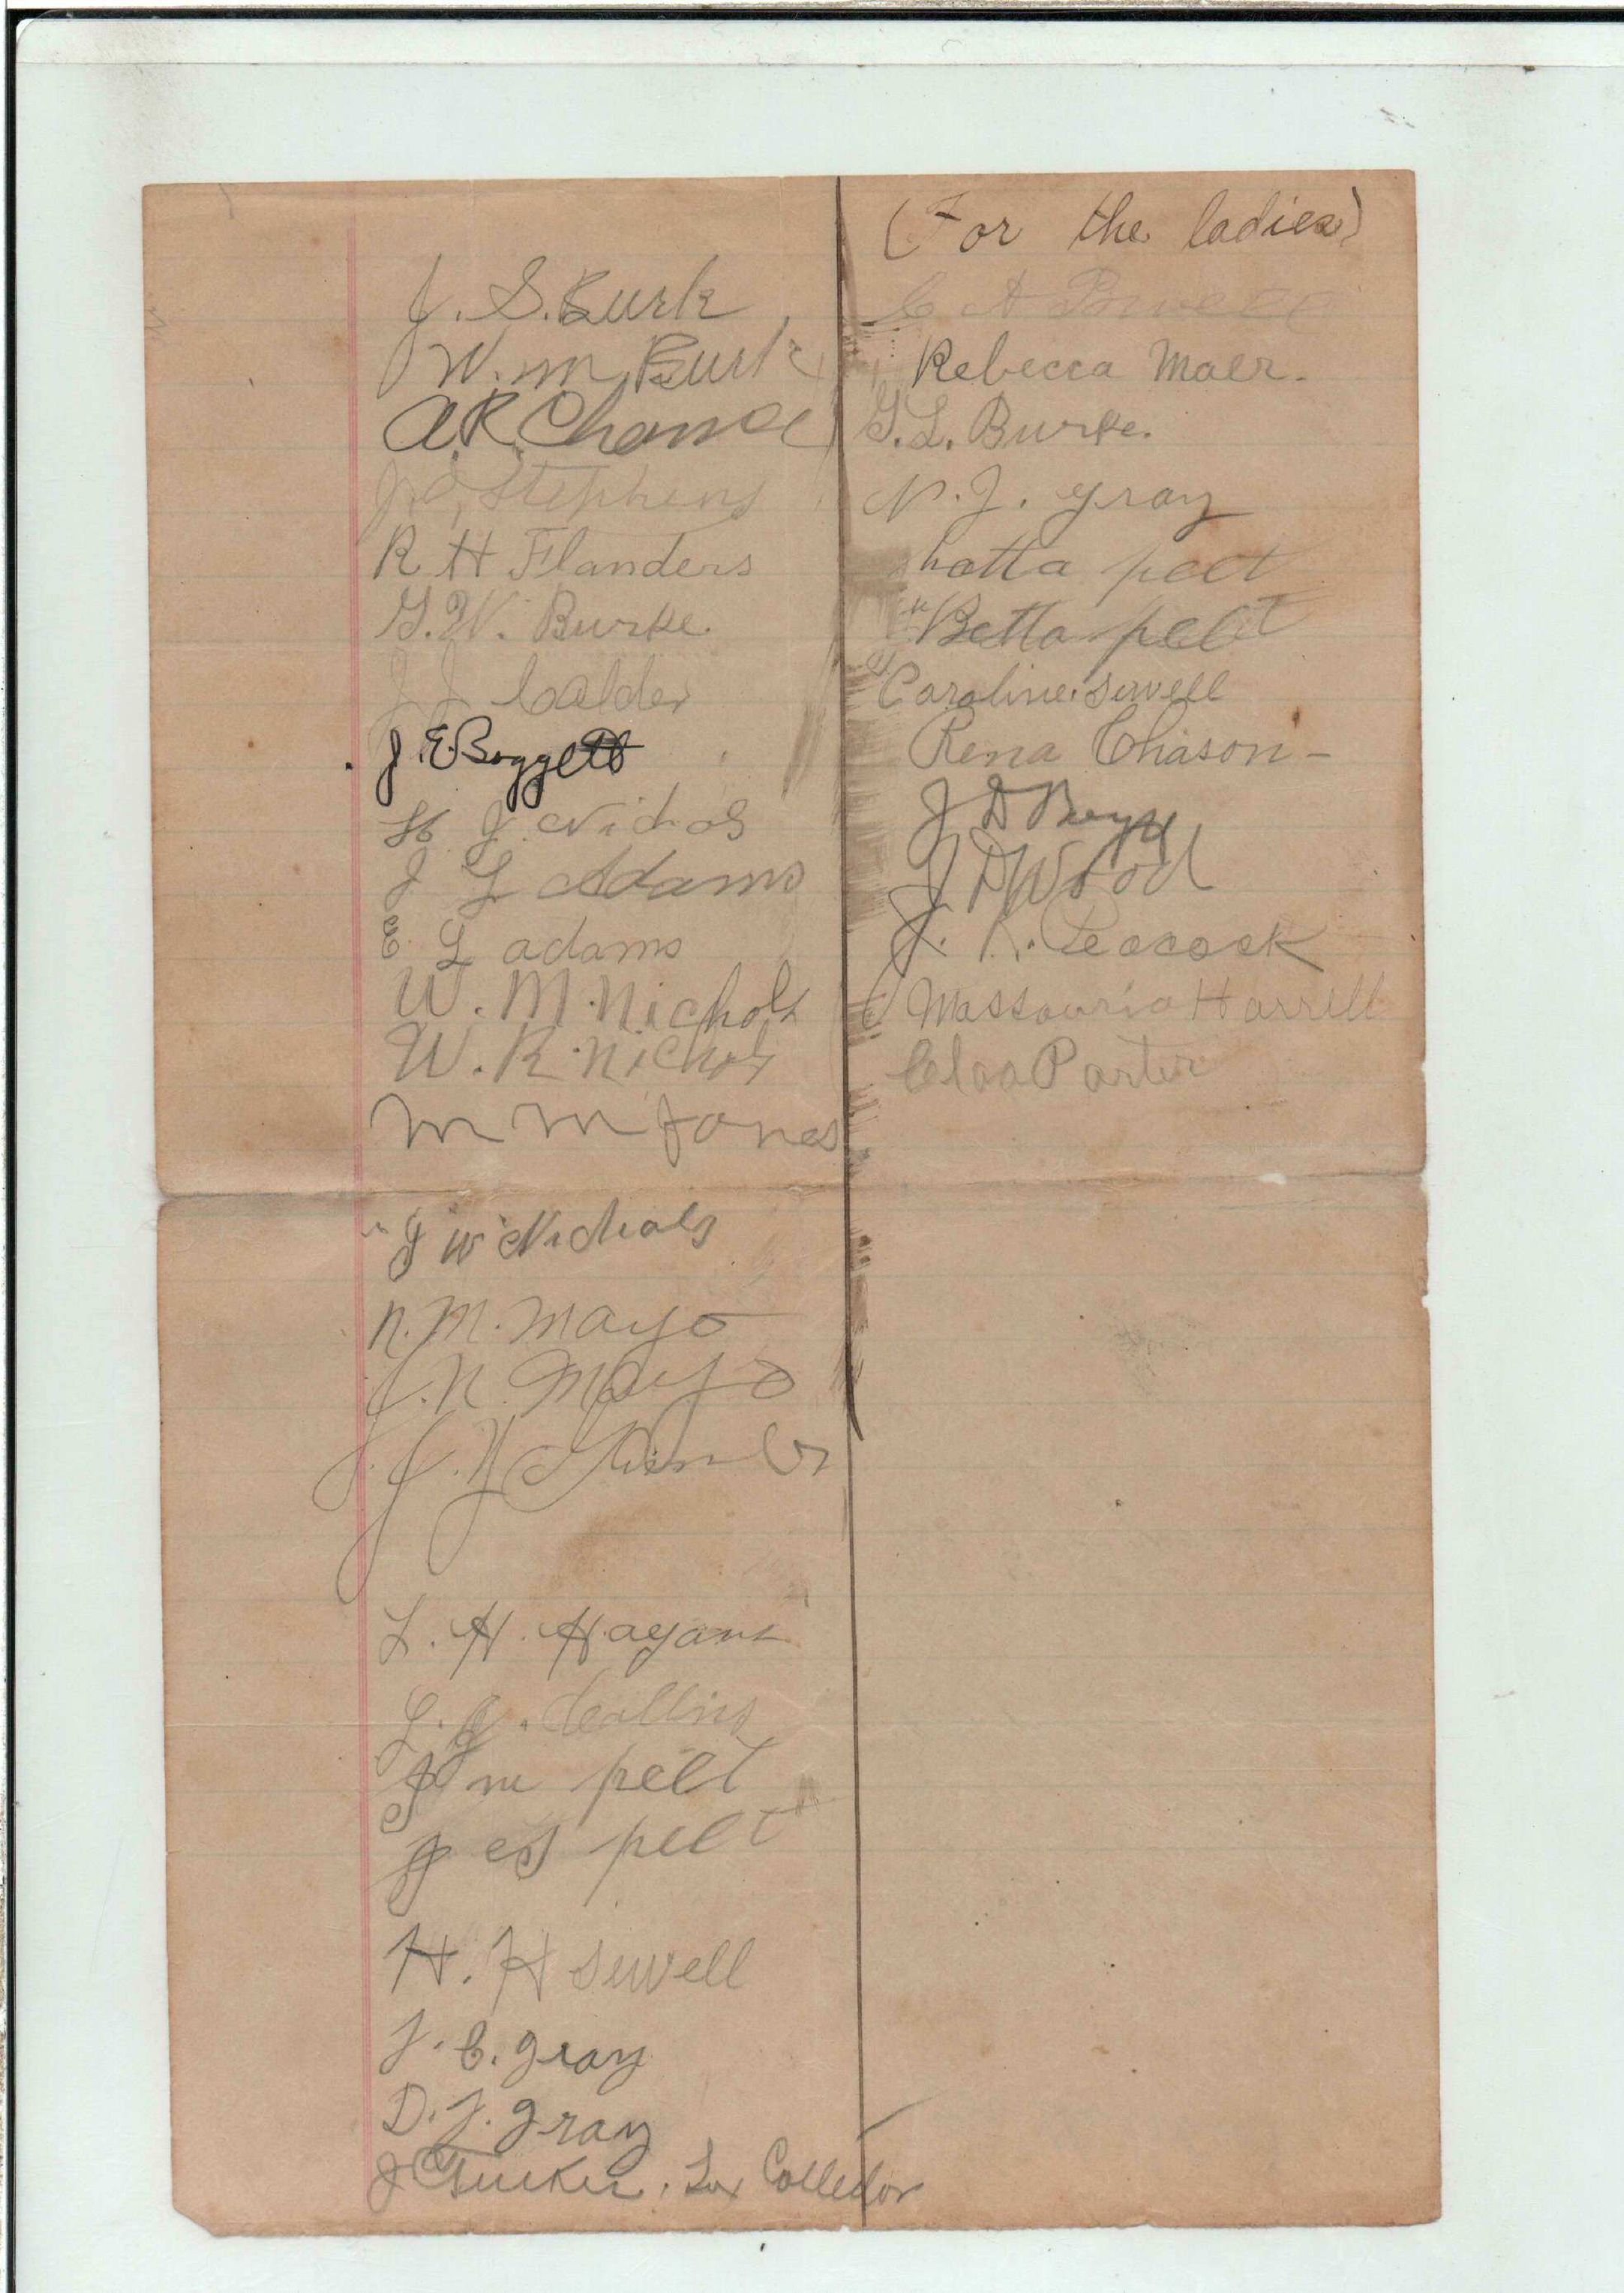 J. S. Burk
W. m Burk
A. R. Chance
J. C. Stephens
R H Flanders
G. W. Burke.
J J Calder
J. E. Boggett
H J Nichols
J L Adams
E L adams
W. M. Nichols
W. R. Nichols
m m Jones
J W Nichols
N. M. Mayo
J. N. Mayo
L. H. Hagans
L. J. Collins
J m pelt
J es pelt
H. H sewell
J. C. gray
D. J. gray
J C Tucker. Tax Collector
(For the ladies)
C A
Rebecca Maer.
G. L. Burke.
N. J. gray
hatta pelt
Betta pelt
Caroline sewell
Rena Chason -
J D
J D Wood
J. R. Peacock
Massouria Harrell
Cloa Porter